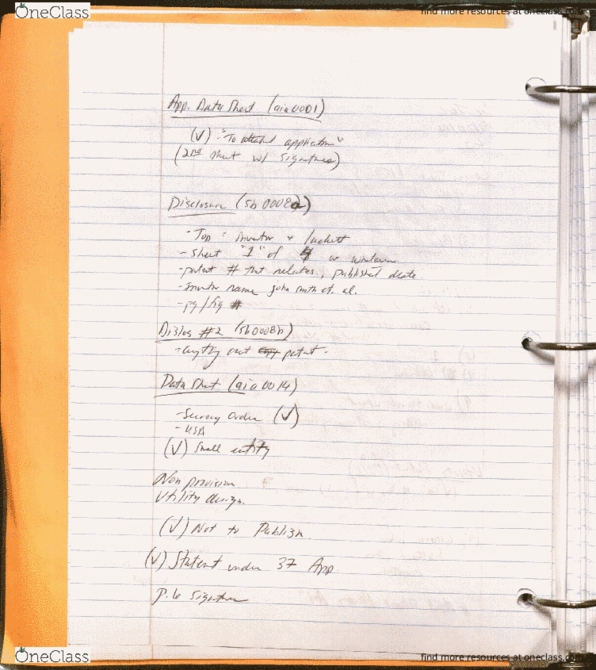 OneClass
find more resources at oneclass.com
App. Data Sheet (aia0001)
(√) "To attached application"
(2nd sheet w/ signatures)
Disclosure (sb0008a)
- Top = inventor + docket
- sheet "1" of 4 or whatever
- patent # that relates, published date
- inventor name John Smith et. al.
- pg/fig #
Disclos #2 (sb0008b)
- anything not patent.
Data Sheet (aia0014)
- Secrecy Order (√)
- USA
(√) Small entity
Non provision
Utility design.
(√) Not to Publish
(√) Statement under 37 App
P.6 Signature
OneClass
find more resources at oneclass.com